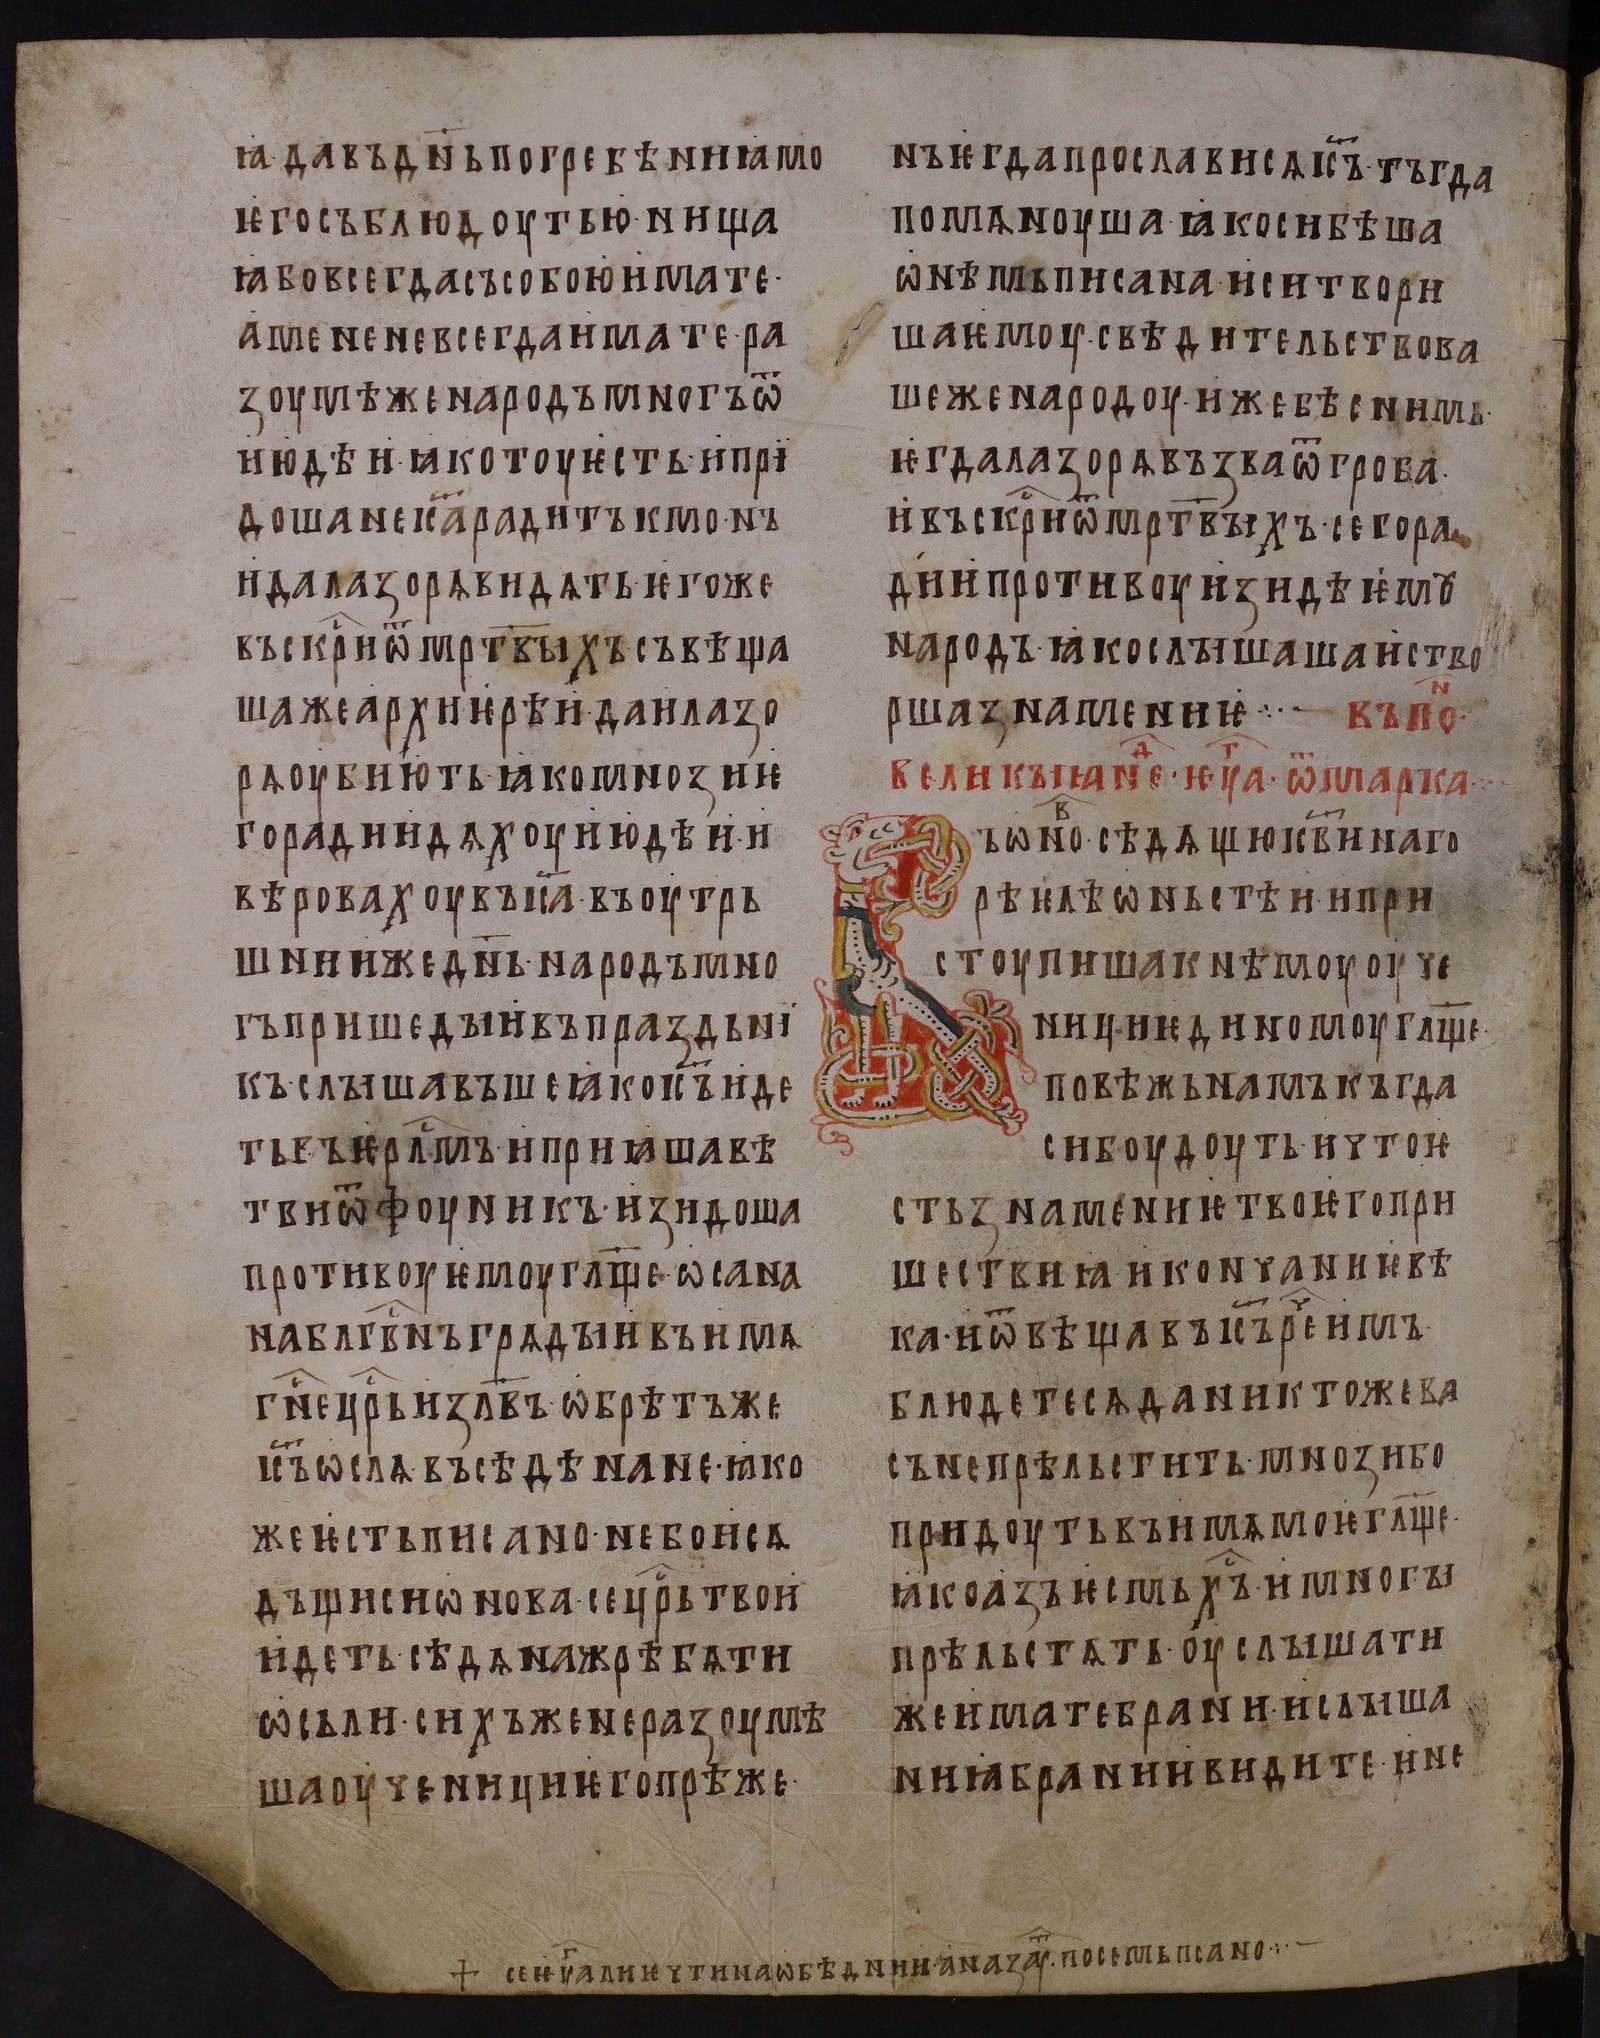 ꙗ·давъдн҃ьпогребѣниꙗмо
ѥгосъблюдоутью·нища
ꙗбовсегдасъсобоюимате·
амененевсегдаимате·ра
зоумѣженародъмногъѿ
июдѣи·ꙗкотоуѥсть·ипрї
дошанеіс҃арадитъкмо·нъ
идалазорѧвидѧть·ѥгоже
въскр҃ниѿмрт҃выхъ·съвѣща
шажеархиѥрѣи·даилазо
рѧоубиють·ꙗкомнозиѥ
горадиидѧхоуиюдѣи·и
вѣровахоувъіс҃а·въоутрь
шниижедн҃ь·народъмно
гъпришедыивъпраздьнї
къ·слышавъшеꙗкоіс҃ъиде
тьвъѥрл҃мъ·иприꙗшавѣ
твиѿфоуникъ·изидоша
противоуѥмоугл҃ще·ѡсана
наблг҃внъгрѧдыивъимѧ
гн҃ецр҃ьизл҃въ·ѡбрѣтъже
іс҃ъѡслѧ·въсѣдѣнане·ꙗко
жеѥстьписано·небоисѧ
дъщисиѡнова·сецр҃ьтвои
идеть·сѣдѧнажрѣбѧти
ѡсьли·сихъженеразоумѣ
шаоученициѥгопрѣже·
нъѥгдапрослависѧіс҃ъ·тъгда
помѧноуша·ꙗкосибѣша
ѡнѣмьписана·иситвори
шаѥмоу·свѣдительствова
шеженародоу·ижебѣснимь·
ѥгдалазорѧвъзваѿгроба·
ивъскр҃ниѿмрт҃выхъ·сегора
диипротивоуизидѣѥмꙋ
народъ·ꙗкослышашаиство
ршазнамениѥ··· въпон҃·
великыꙗнед҃е·ѥуг҃а·ѿмарка·
въѡно·сѣдѧщюіс҃винаго
рѣѥлѣѡньстѣи·ипри
стоупишакнѣмоуоуче
ници·иѥдиномоугл҃ще·
повѣжьнамъкъгда
сибоудоуть·ичтоѥ
стьзнамениѥтвоѥгопри
шествиꙗ·икончаниѥвѣ
ка·иѿвѣщавъіс҃ъреч҃имъ·
блюдетесѧданиктожева
сънепрѣльстить·мнозибо
придоутьвъимѧмоѥгл҃ще·
ꙗкоазъѥсмьх҃ъ·имногы
прѣльстѧть·оуслышати
жеиматебрани·ислыша
ниꙗбранииидите·ине